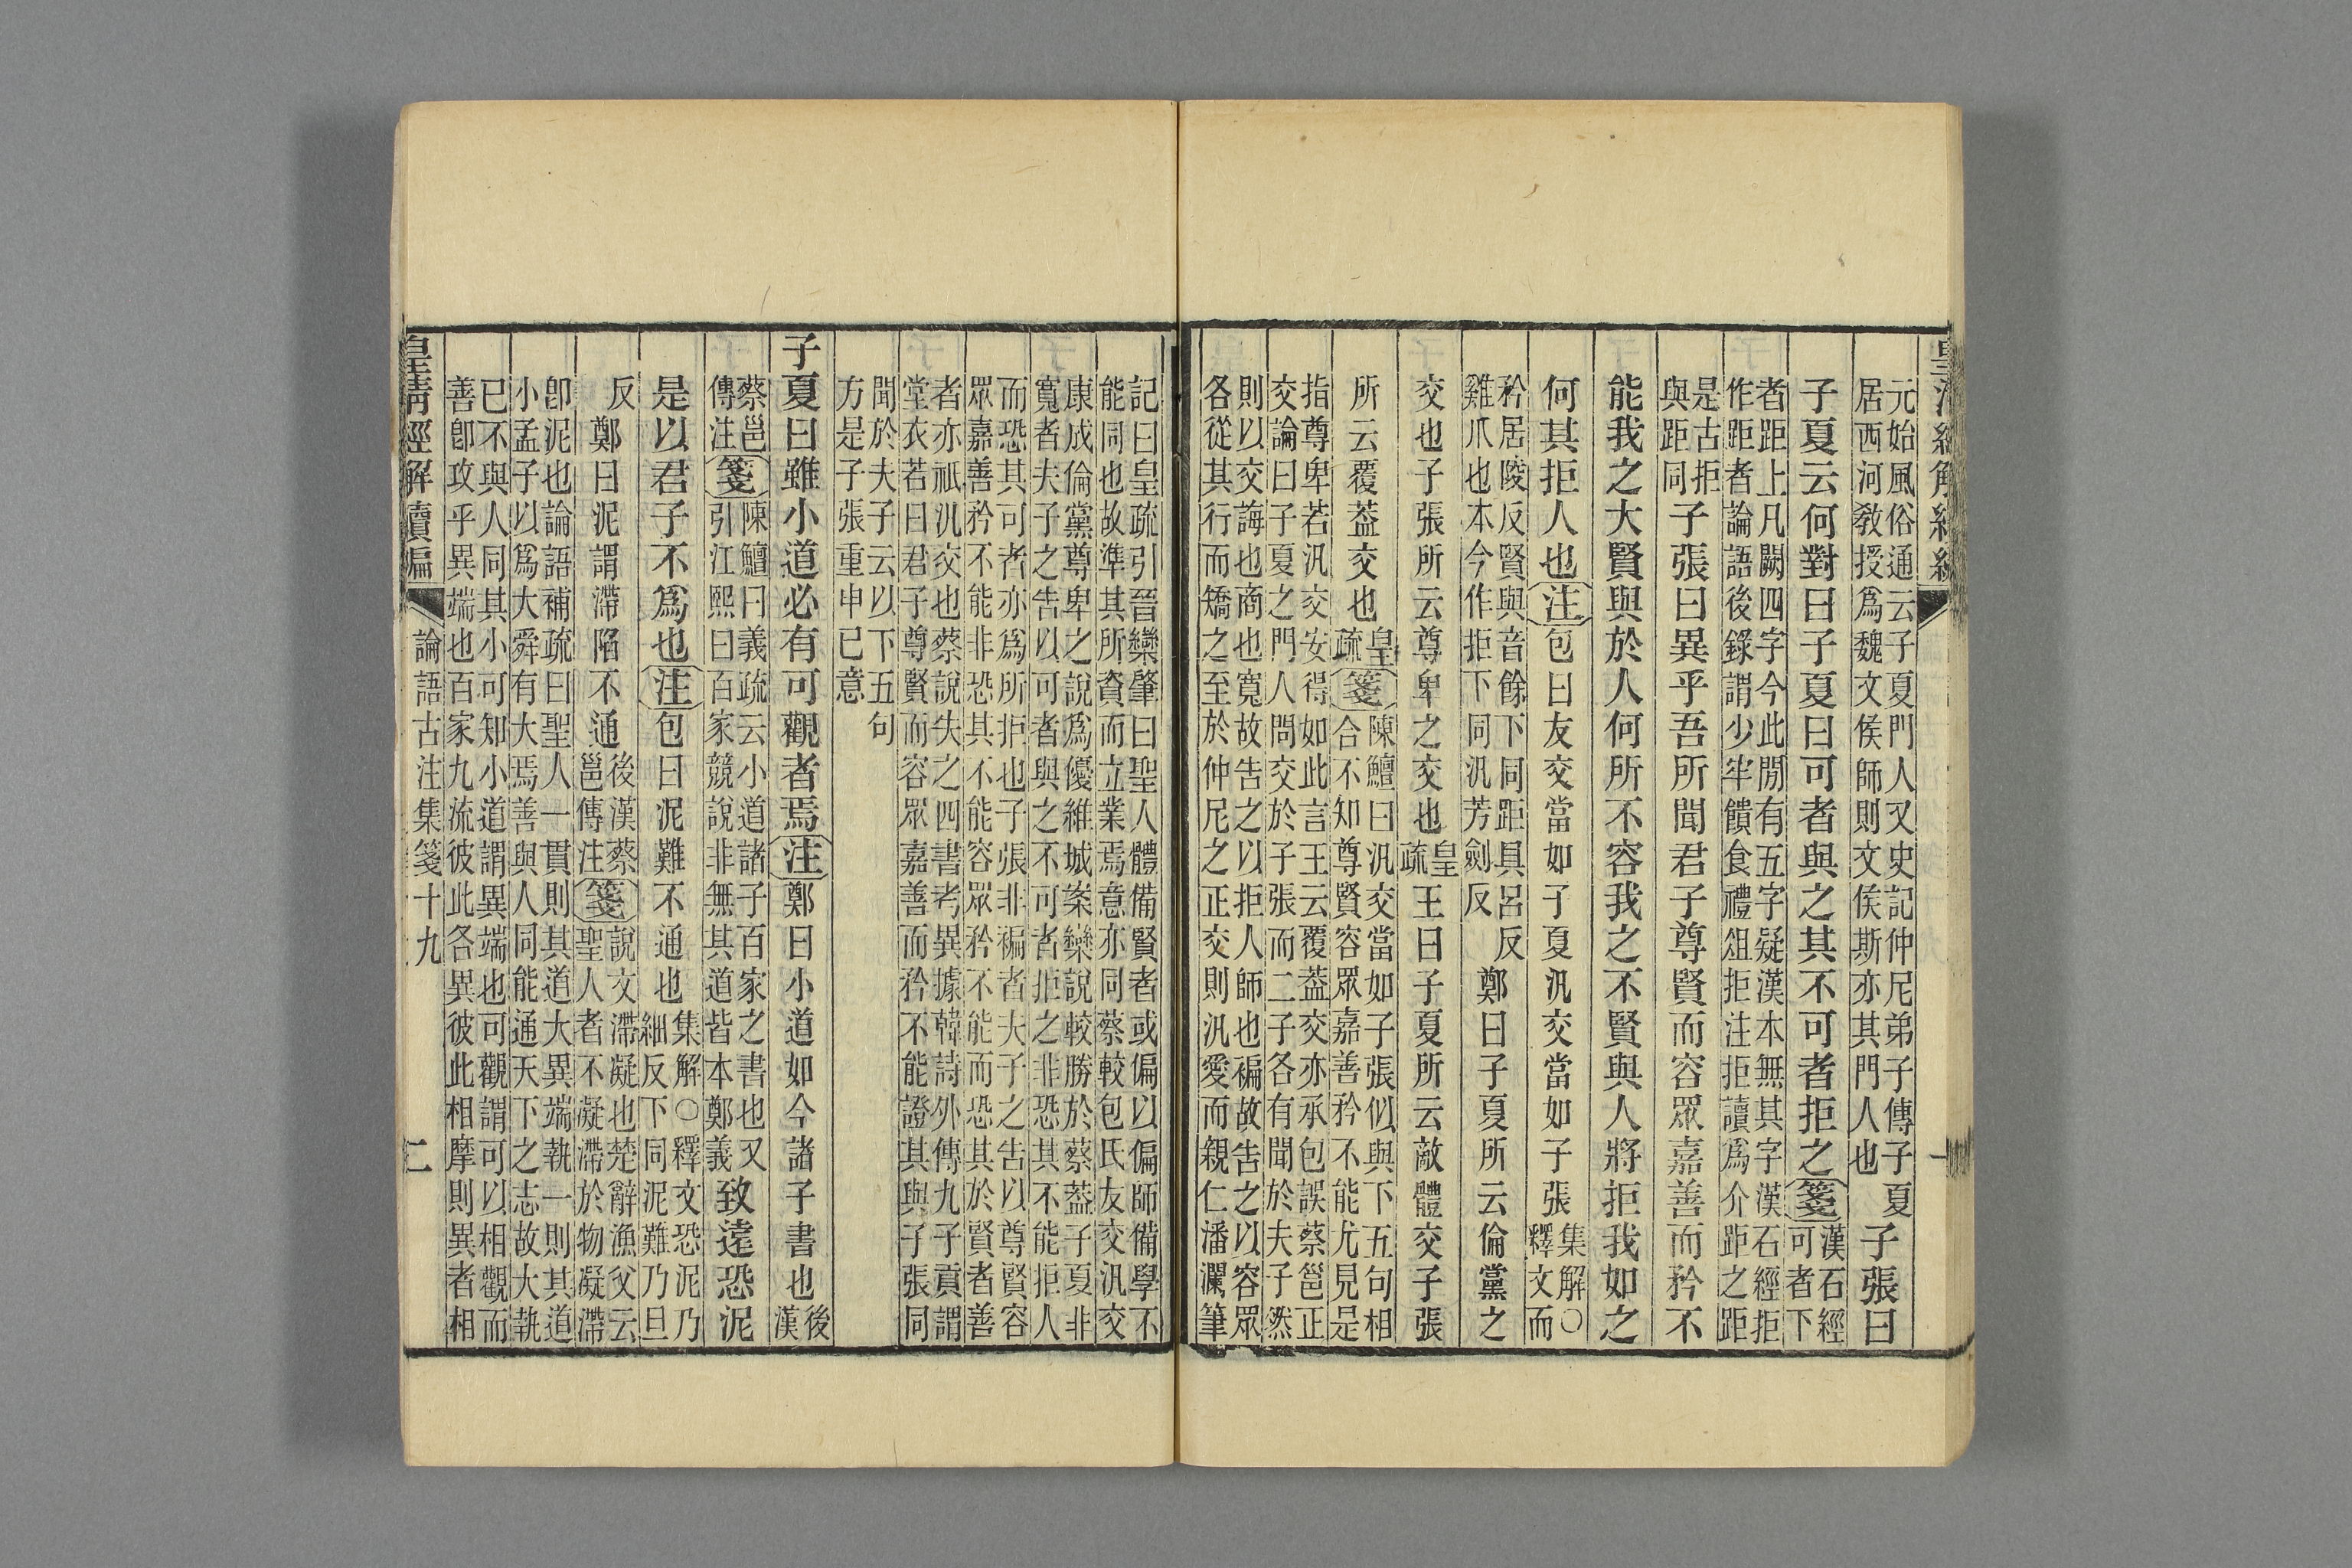 元始風俗通云子夏門人又史記仲尼弟子傳子夏
居西河敎授爲魏文侯師則文侯斯亦其門人也
子張曰
子夏云何對曰子夏曰可者與之其不可者拒之
箋
漢石經
可者下
者距上凡闕四字今此閒有五字疑漢本無其字漢石經拒
作距者論語後錄謂少牢饋食禮俎拒注拒讀爲介距之距
是古拒
與距同
子張曰異乎吾所聞君子尊賢而容眾嘉善而矜不
能我之大賢與於人何所不容我之不賢與人將拒我如之
何其拒人也
注
包曰友交當如子夏汎交當如子張
集解〇
釋文而
矜居陵反賢與音餘下同距具呂反
雞爪也本今作拒下同汎芳劍反
鄭曰子夏所云倫黨之
交也子張所云尊卑之交也
皇
疏
王曰子夏所云敵體交子張
所云覆葢交也
皇
疏
箋
陳鱣曰汎交當如子張似與下五句相
合不知尊賢容眾嘉善矜不能尤見是
指尊卑若汎交安得如此言王云覆葢交亦承包誤蔡邕正
交論曰子夏之門人問交於子張而二子各有聞於夫子然
則以交誨也商也寬故告之以拒人師也褊故告之以容眾
各從其行而矯之至於仲尼之正交則汎愛而親仁潘瀾筆
記曰皇疏引晉欒肇曰聖人體備賢者或偏以偏師備學不
能同也故準其所資而立業焉意亦同蔡較包氏友交汎交
康成倫黨尊卑之說爲優維城案欒說較勝於蔡葢子夏非
寬者夫子之吿以可者與之不可者拒之非恐其不能拒人
而恐其可者亦爲所拒也子張非褊者夫子之吿以尊賢容
眾嘉善矜不能非恐其不能容眾矜不能而恐其於賢者善
者亦祇汎交也蔡說失之四書考異據韓詩外傳九子貢謂
堂衣若曰君子尊賢而容眾嘉善而矜不能證其與子張同
聞於夫子云以下五句
方是子張重申已意
子夏曰雖小道必有可觀者焉
注
鄭曰小道如今諸子書也
後
漢
蔡邕
傳注
箋
陳鱣曰義疏云小道諸子百家之書也又
引江熙曰百家競說非無其道皆本鄭義
致遠恐泥
是以君子不爲也
注
包曰泥難不通也
集解〇釋文恐泥乃
細反下同泥難乃旦
反
鄭曰泥謂滯陷不通
後漢蔡
邕傳注
箋
說文滯凝也楚辭漁父云
聖人者不凝滯於物凝滯
卽泥也論語補疏曰聖人一貫則其道大異端執一則其道
小孟子以爲大舜有大焉善與人同能通天下之志故大執
已不與人同其小可知小道謂異端也可觀謂可以相觀而
善卽攻乎異端也百家九流彼此各異彼此相摩則異者相
皇清經解續編
論語古注集箋十九
二